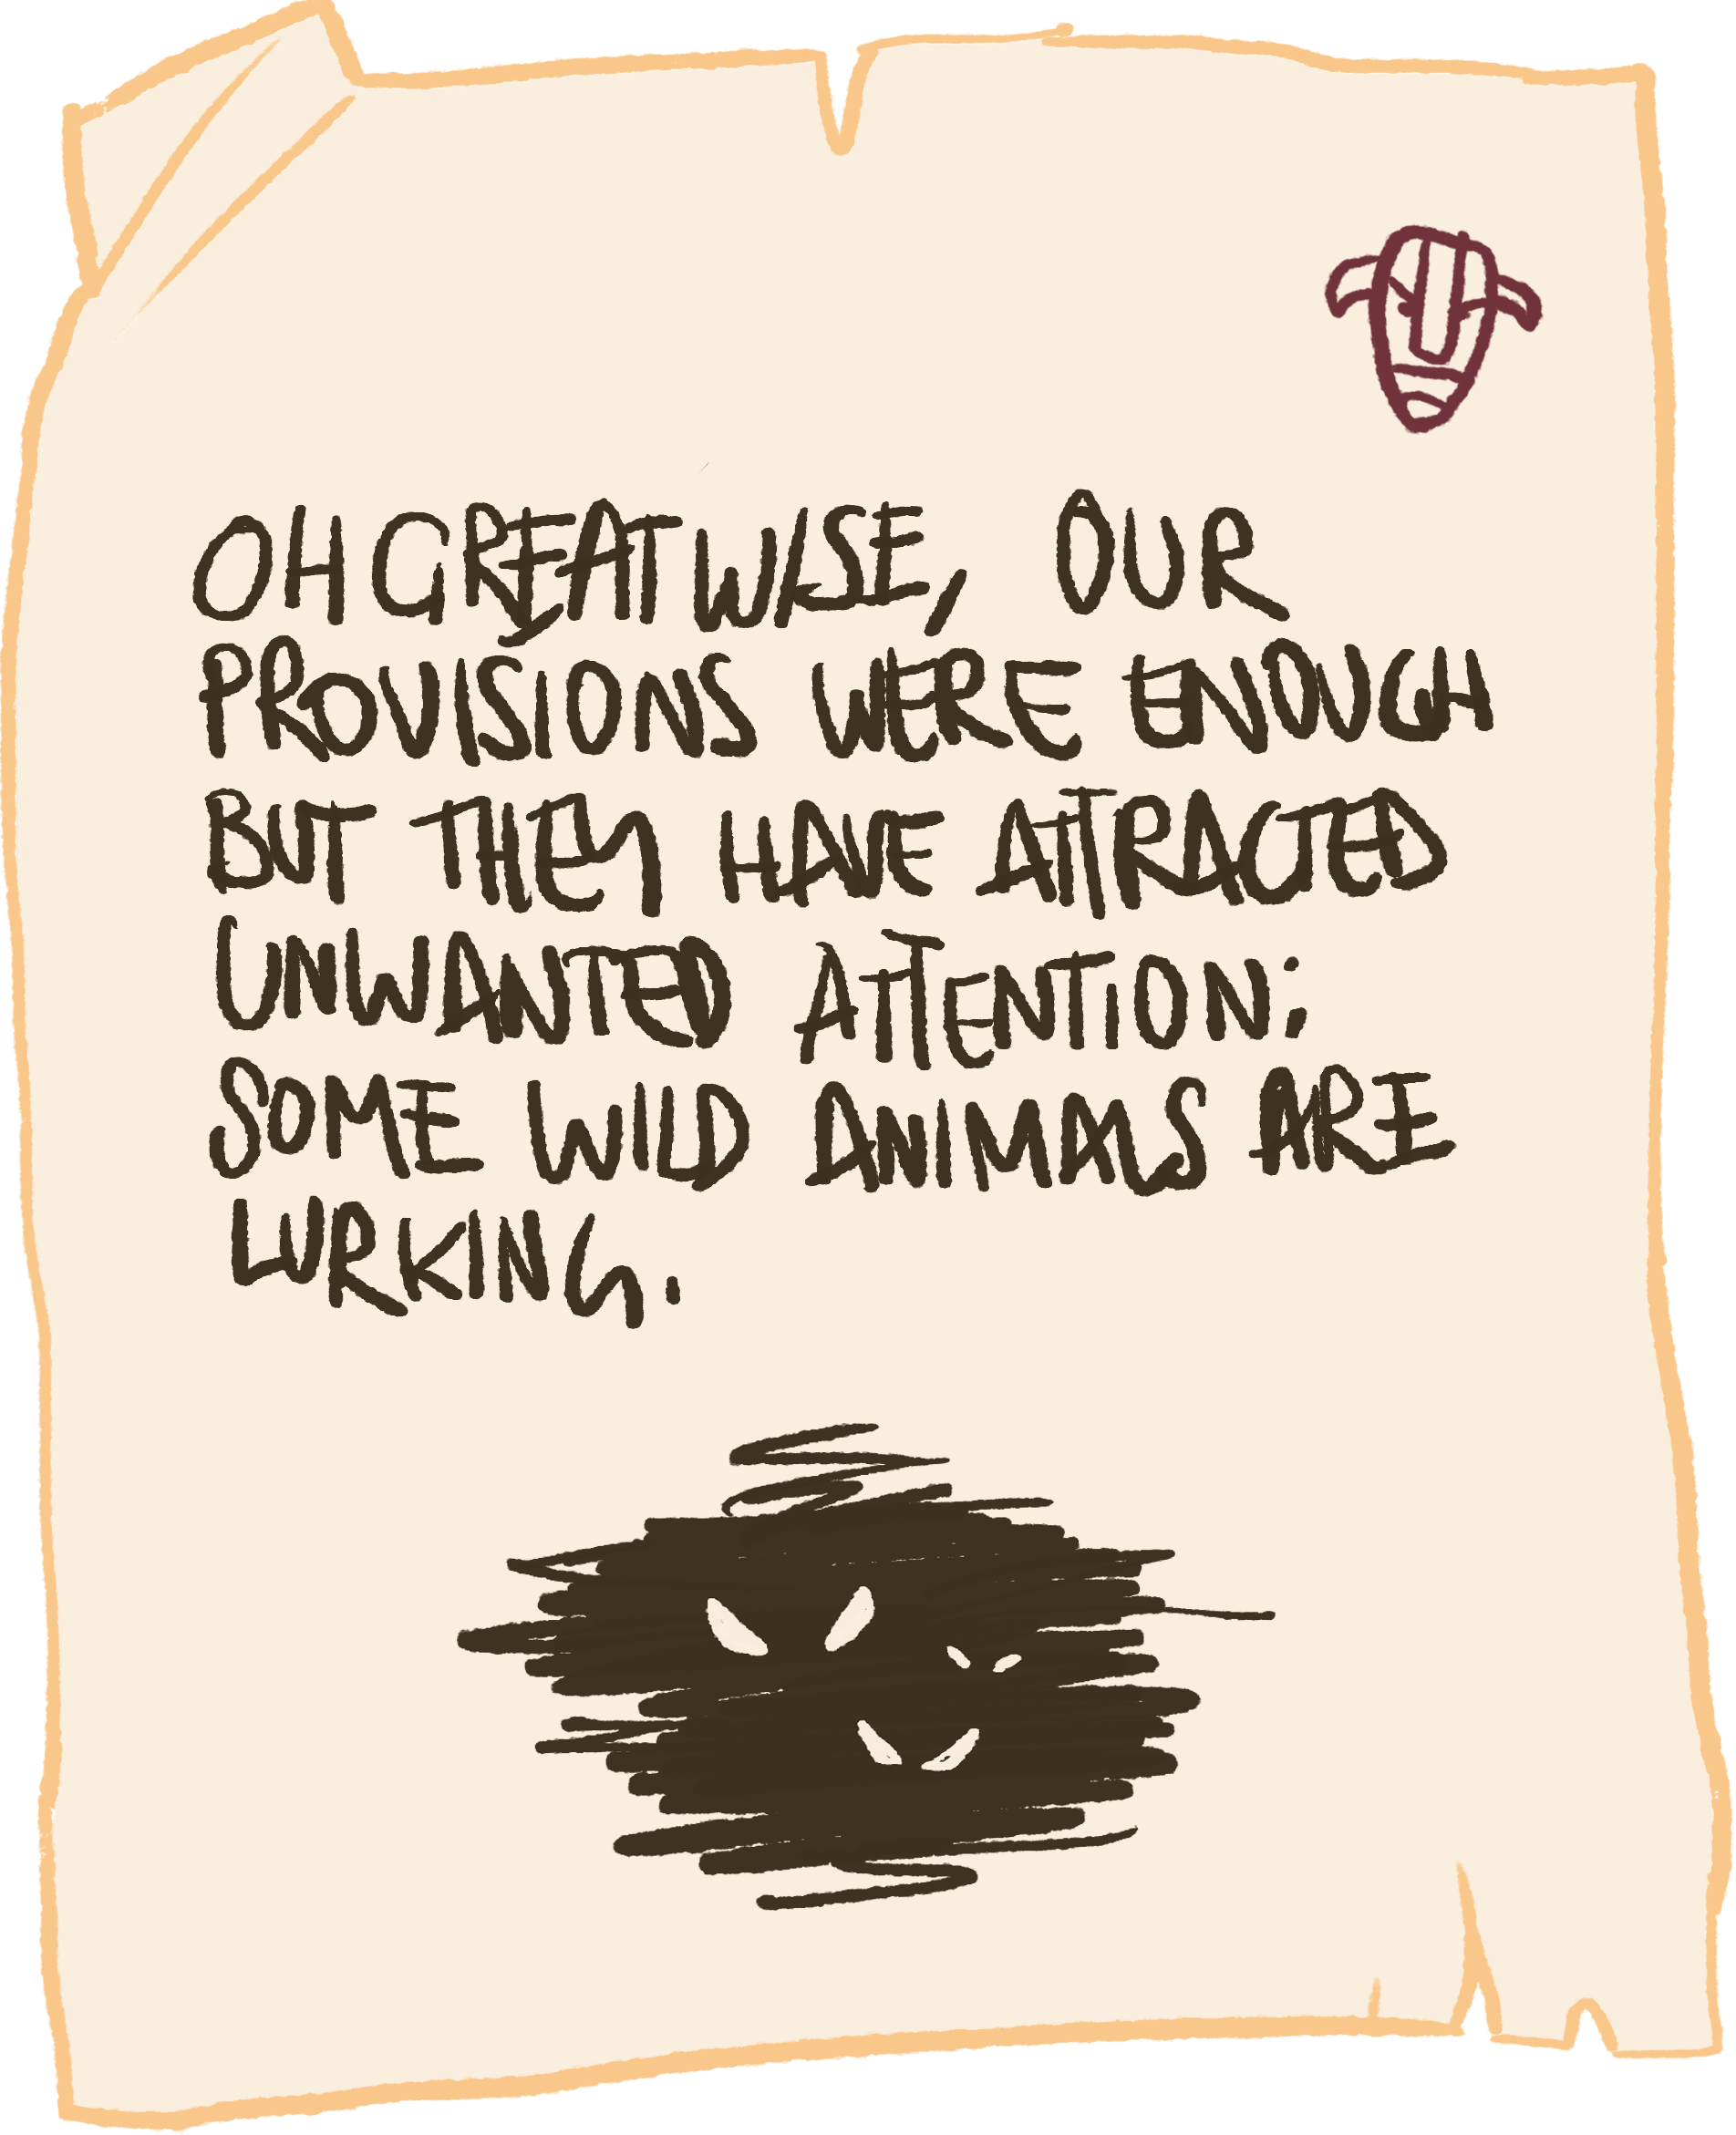 OH GREAT WISE, OUR
PROVISIONS WERE ENOUGH
BUT THEY HAVE ATTRACTED
UNWANTED ATTENTION;
SOME WILD ANIMALS ARE
LURKING.